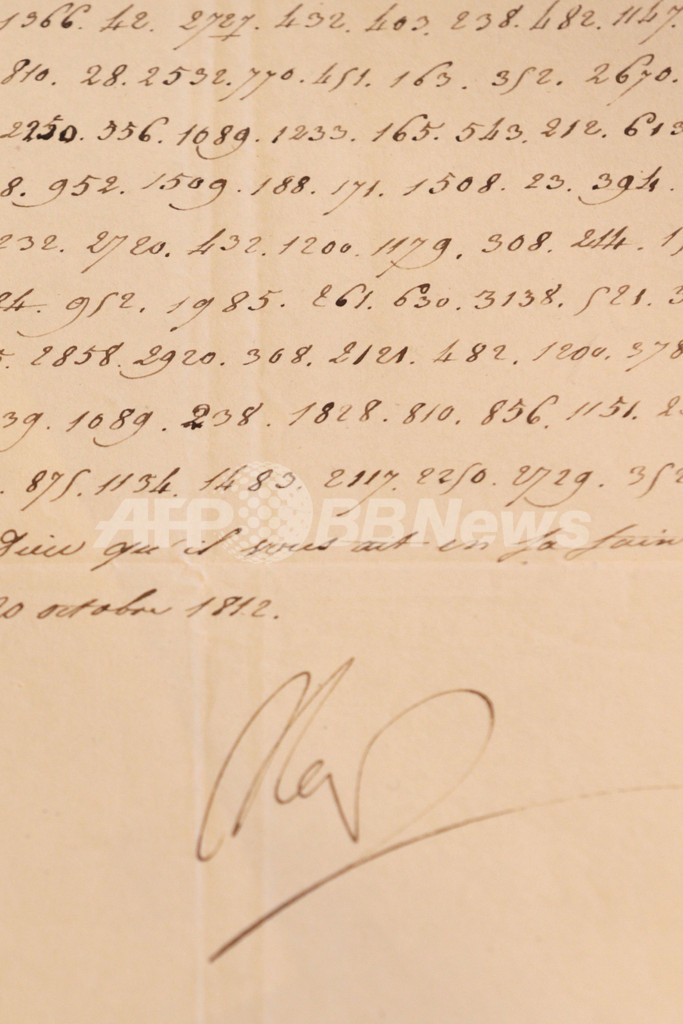 1366. 42. 2727. 432. 403. 238. 482. 1147.
810. 28. 2532. 770. 451. 163. 352. 2670.
2250. 356. 1089. 1233. 165. 543. 212. 613
8. 952. 1509. 188. 171. 1508. 23. 394.
232. 2720. 432. 1200. 1179. 308. 214. 1
24. 952. 1985. 261. 630. 3138. 521. 3
5. 2858. 2920. 308. 2121. 482. 1200. 378
39. 1089. 238. 1828. 810. 856. 1151. 2
. 875. 1134. 1483. 2117. 2250. 2729. 352
AFP BBNews
Dieu qu'il vous ait en sa sain
20 octobre 1812.
Nap